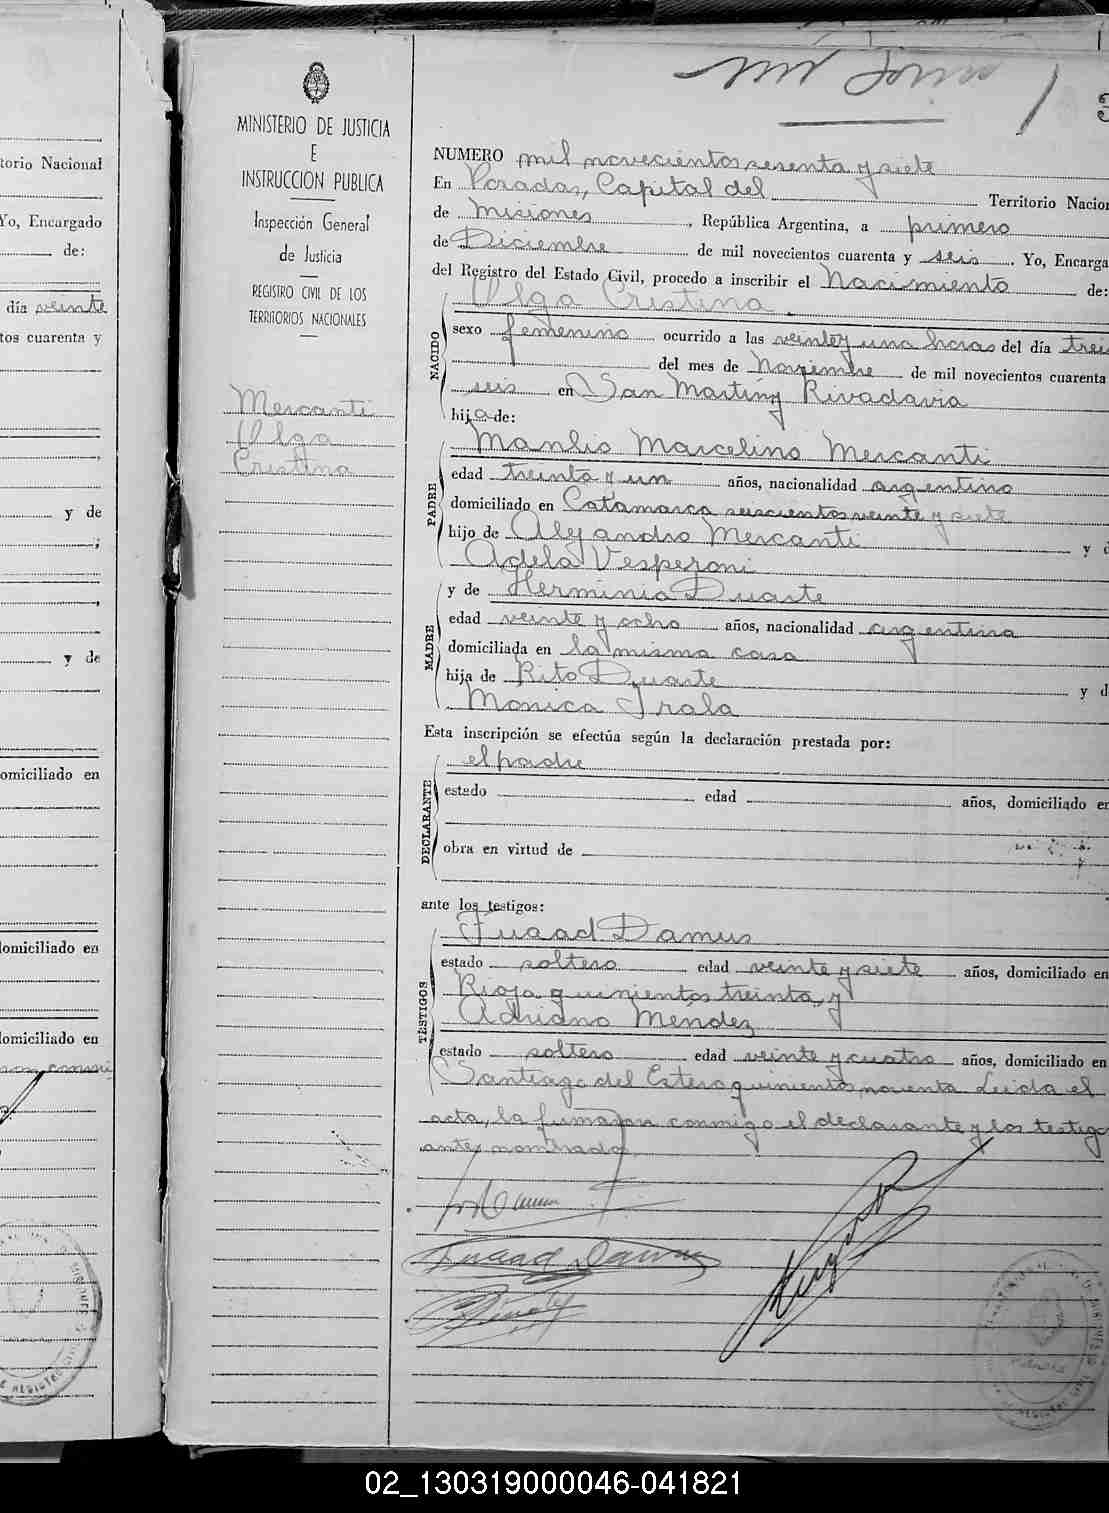 MINISTERIO DE JUSTICIA
E
INSTRUCCION PUBLICA
Inspección General
de Justicia
REGISTRO CIVIL DE LOS
TERRITORIOS NACIONALES
Mercanti
Olga
Cristina
torio Nacional
Yo, Encargado
de:
día veinte
tos cuarenta y
y de
y de
omiciliado en
domiciliado en
domiciliado en
NUMERO mil novecientos sesenta y siete
En Posadas, Capital del Territorio Nacion
de Misiones, República Argentina, a primero
de Diciembre de mil novecientos cuarenta y seis. Yo, Encarga
del Registro del Estado Civil, procedo a inscribir el Nacimiento de:
NACIDO
Olga Cristina
sexo femenino ocurrido a las veinte y una horas del día trein
del mes de Noviembre de mil novecientos cuarenta
seis en San Martín y Rivadavia
hija de:
PADRE
Manlio Marcelino Mercanti
edad treinta y un años, nacionalidad argentino
domiciliado en Catamarca seiscientos veinte y siete
hijo de Alejandro Mercanti y d
Adela Vesperoni
y de Herminia Duarte
MADRE
edad veinte y ocho años, nacionalidad argentina
domiciliada en la misma casa
hija de Rito Duarte y d
Mónica Irala
Esta inscripción se efectúa según la declaración prestada por:
DECLARANTE
el padre
estado edad años, domiciliado en
obra en virtud de
ante los testigos:
TESTIGOS
Fuaad Damus
estado soltero edad veinte y siete años, domiciliado en
Rioja quinientos treinta, y
Adriano Méndez
estado soltero edad veinte y cuatro años, domiciliado en
Santiago del Estero quinientos noventa. Leida el
acta, la firmaron conmigo el declarante y los testigo
antes nombrado.
Fuaad Damus
02_130319000046-041821